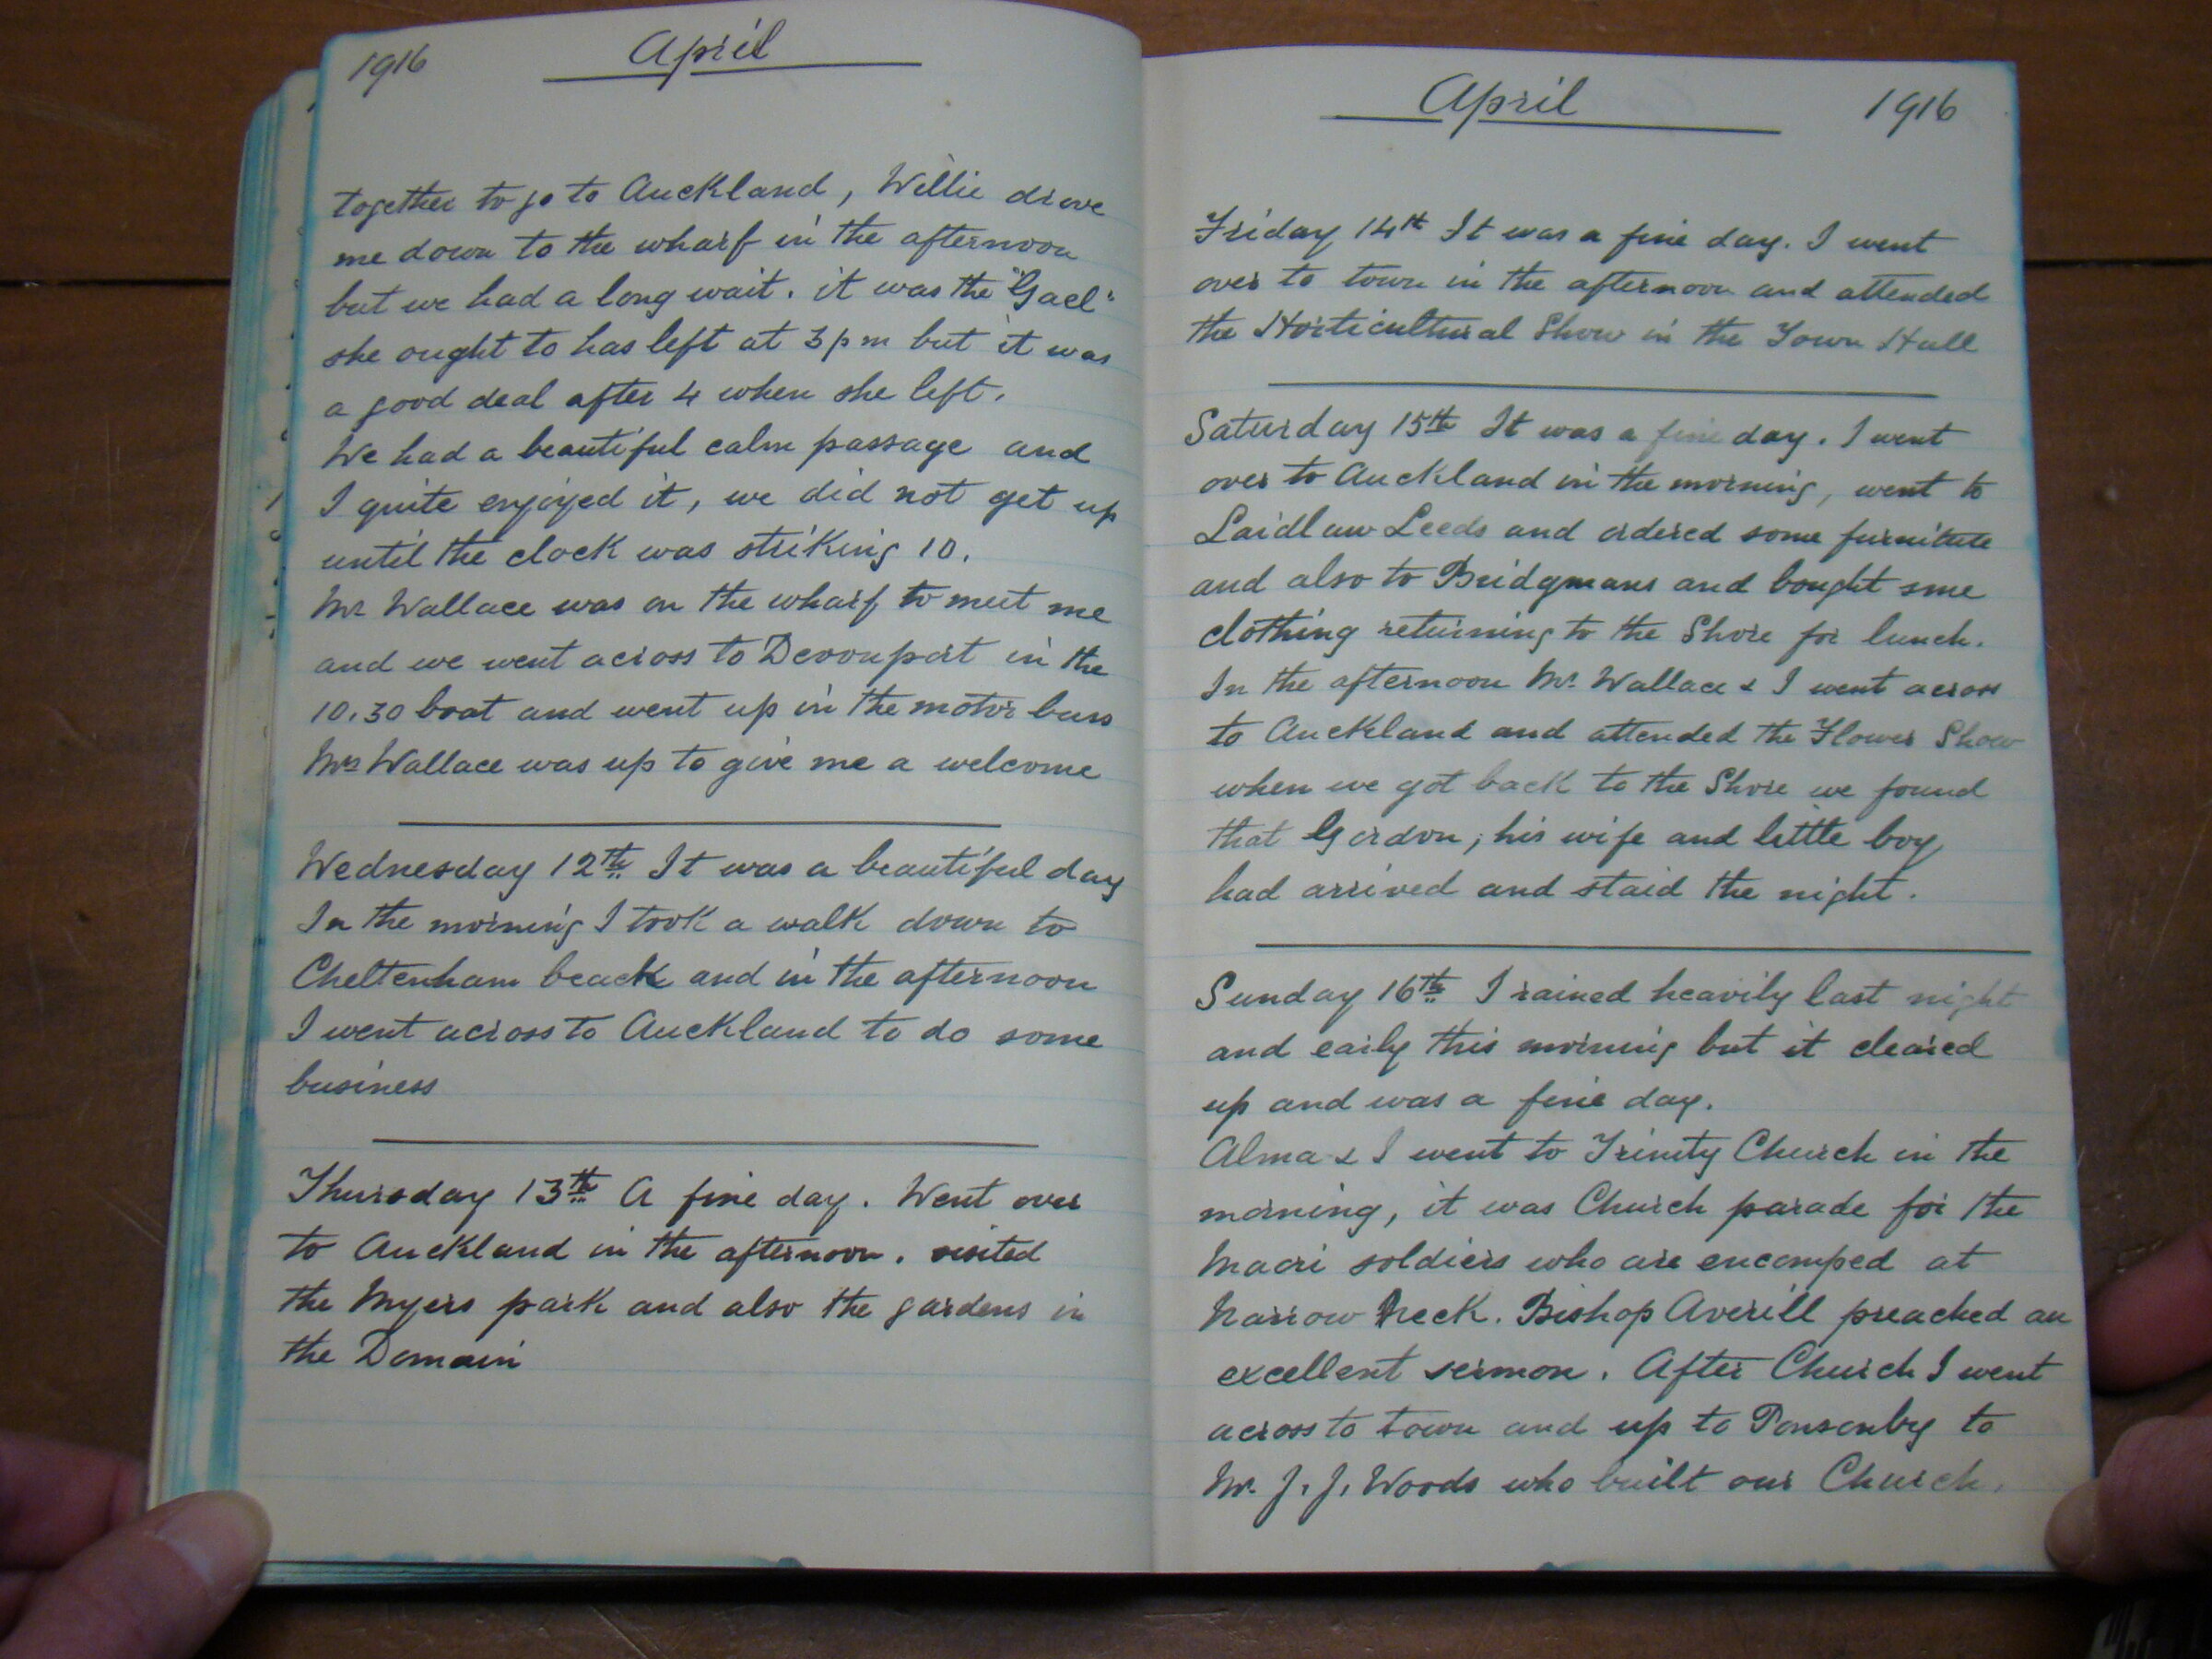 1916 April
together to go to Auckland, Willie drove
me down to the wharf in the afternoon
but we had a long wait. it was the "Gael"
she ought to has left at 3 pm but it was
a good deal after 4 when she left.
We had a beautiful calm passage and
I quite enjoyed it, we did not get up
until the clock was striking 10.
Mr Wallace was on the wharf to meet me
and we went across to Devonport in the
10.30 boat and went up in the motor buss
Mrs Wallace was up to give me a welcome
Wednesday 12th It was a beautiful day
In the morning I took a walk down to
Cheltenham beach and in the afternoon
I went across to Auckland to do some
business
Thursday 13th A fine day. Went over
to Auckland in the afternoon. visited
the Myers park and also the gardens in
the Domain
April 1916
Friday 14th It was a fine day. I went
over to town in the afternoon and attended
the Horticultural Show in the Town Hall
Saturday 15th It was a fine day. I went
over to Auckland in the morning, went to
Laidlaw Leeds and ordered some furniture
and also to Bridgmans and bought sme
clothing returning to the Shore for lunch.
In the afternoon Mr. Wallace & I went across
to Auckland and attended the Flower Show
when we got back to the Shore we found
that Gordon, his wife and little boy
had arrived and staid the night.
Sunday 16th I rained heavily last night
and early this morning but it cleared
up and was a fine day.
Alma & I went to Trinity Church in the
morning, it was Church parade for the
Maori soldiers who are encamped at
Narrow Neck. Bishop Averill preached an
excellent sermon. After Church I went
across to town and up to Ponsonby to
Mr. J. J. Woods who built our Church.